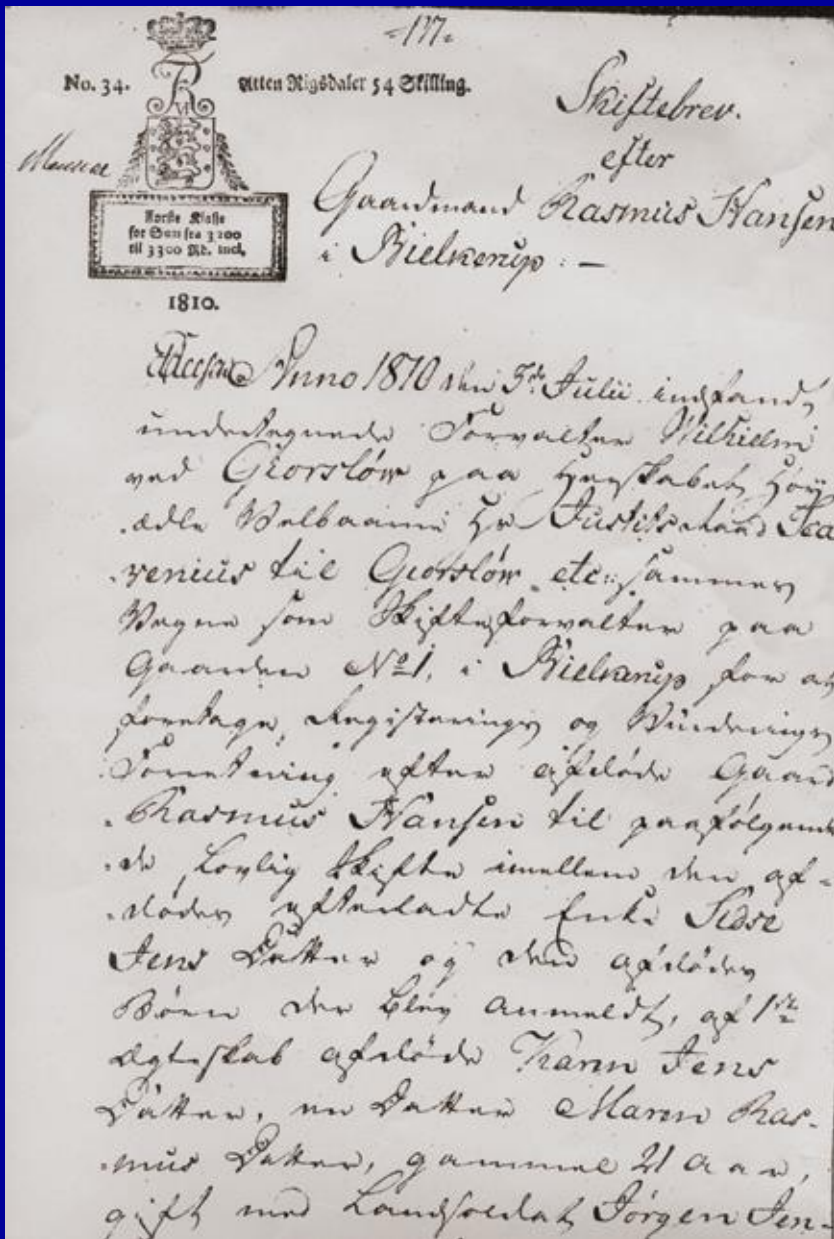 =177=
No. 34.
Atten Rigsdaler 54 Skilling.
Skiftebrev.
efter
Gaardmand Rasmus Hansen
i Bielkerup: —
Første Klasse
for Sum fra 3200
til 3300 Rd. incl.
1810.
Anno 1810 den 5te Julii indfandt
undertegnede Forvalter Wilhielmi
ved Giorslöw paa Herskabet Höy
ædle Velbaarne Hr Justitsraad Sca
venius til Giorslöw etc: sammes
Vegne som Skifteforvalter paa
Gaarden No 1, i Bielkerup for at
foretage Registerings og Vurderings
Forretning efter afdöde Gaard
Rasmus Hansen til paafölgende
de Lovlig Skifte imellem den af-
dödes efterladte Enke Sidse
Jens Datter og den afdödes
Börn der blev anmeldt, af 1ste
Ægteskab afdöde Karen Jens
Datter, en Datter Maren Ras-
mus Datter, gammel 21 Aar,
gift med Landsoldat Jörgen Jen-